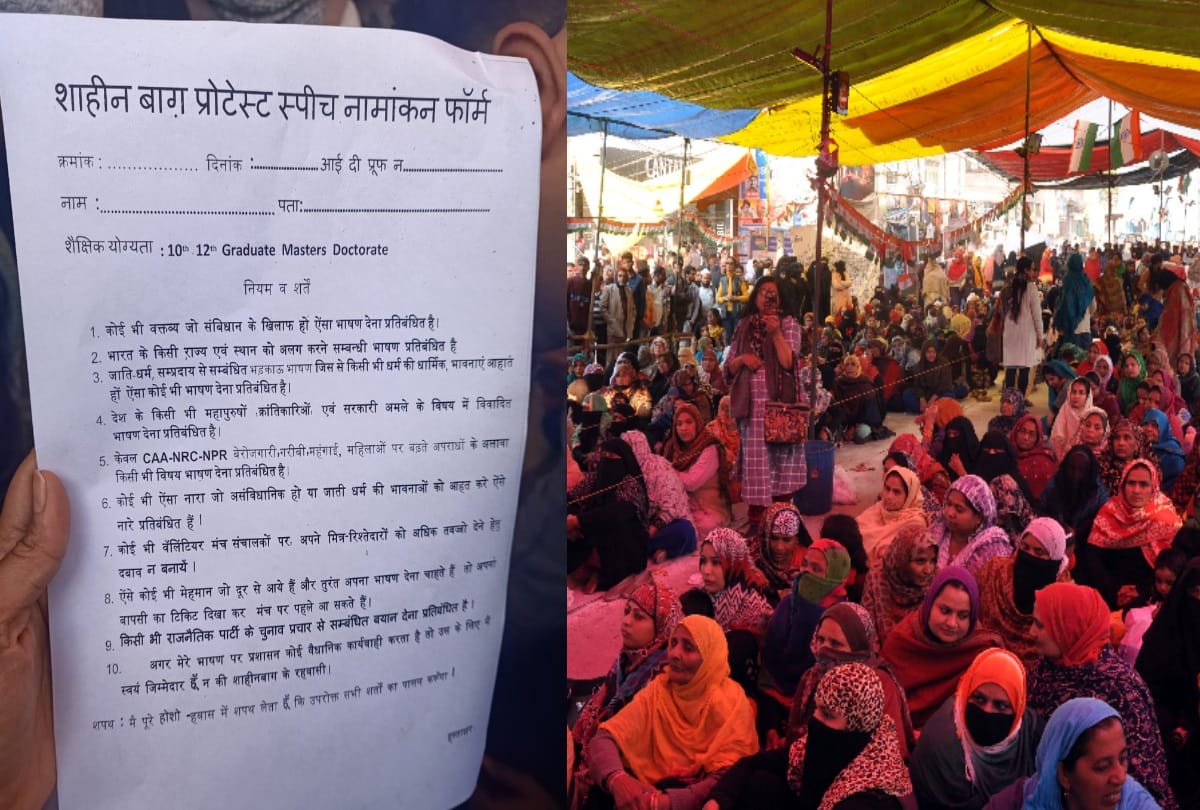 शाहीन बाग़ प्रोटेस्ट स्पीच नामांकन फॉर्म
क्रमांक : .................. दिनांक :..................... आई दी प्रूफ न..............................
नाम :..................................................... पता:.........................................................
शैक्षिक योग्यता : 10th 12th Graduate Masters Doctorate
नियम व शर्तें
1. कोई भी वक्तव्य जो संबिधान के खिलाफ हों ऐंसा भाषण देना प्रतिबंधित है।
2. भारत के किसी राज्य एवं स्थान को अलग करने सम्वन्धी भाषण प्रतिबंधित है
3. जाति-धर्म, सम्प्रदाय से सम्बंधित भड़काऊ भाषण जिस से किसी भी धर्म की धार्मिक, भावनाएं आहात
हों ऐंसा कोई भी भाषण देना प्रतिबंधित है।
4. देश के किसी भी महापुरुषों ,क्रांतिकारिओं, एवं सरकारी अमले के विषय में विवादित
भाषण देना प्रतिबंधित है।
5. केवल CAA-NRC-NPR बेरोजगारी,गरीबी,महंगाई, महिलाओं पर बढ़ते अपराधों के अलावा
किसी भी विषय भाषण देना प्रतिबंधित है।
6. कोई भी ऐंसा नारा जो असंविधानिक हो या जाती धर्म की भावनाओं को आहत करे ऐंसे
नारे प्रतिबंधित हैं |
7. कोई भी वॅलिंटियर मंच संचालकों पर, अपने मित्र-रिश्तेदारों को अधिक तवज्जो देने हेतु
दबाव न बनायें |
8. ऐंसे कोई भी मेहमान जो दूर से आये हैं और तुरंत अपना भाषण देना चाहते हैं तो अपनी
वापसी का टिकिट दिखा कर मंच पर पहले आ सकते हैं।
9. किसी भी राजनैतिक पार्टी के चुनाव प्रचार से सम्बंधित बयान देना प्रतिबंधित है।
10. अगर मेरे भाषण पर प्रशासन कोई वैधानिक कार्यवाही करता है तो उस के लिए में
स्वयं जिम्मेदार हूँ न की शाहीनबाग के रहवासी।
शपथ : मै पूरे होशो -हवास में शपथ लेता हूँ कि उपरोक्त सभी शर्तों का पालन करूंगा |
हस्ताक्षर